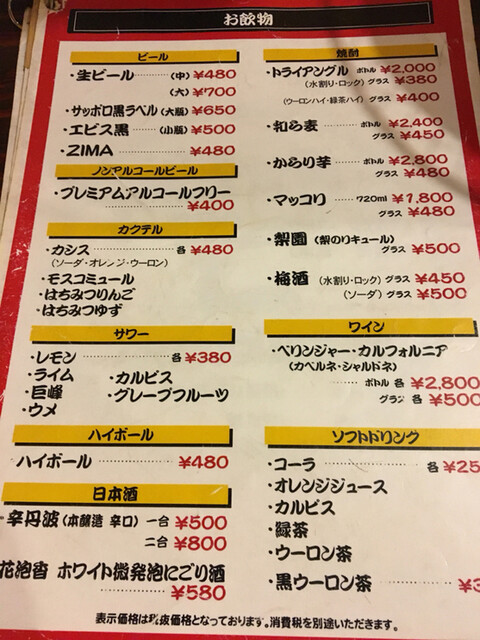 お飲物
ビール
・生ビール (中) ¥480
(大) ¥700
・サッポロ黒ラベル (大瓶) ¥650
・エビス黒 (小瓶) ¥500
・ZIMA ¥480
ノンアルコールビール
・プレミアムアルコールフリー
¥400
カクテル
・カシス 各 ¥480
(ソーダ・オレンジ・ウーロン)
・モスコミュール
・はちみつりんご
・はちみつゆず
サワー
・レモン 各 ¥380
・ライム ・カルピス
・巨峰 ・グレープフルーツ
・ウメ
ハイボール
ハイボール ¥480
日本酒
辛丹波 (本醸造 辛口) 一合 ¥500
二合 ¥800
花泡香 ホワイト微発泡にごり酒
¥580
焼酎
・トライアングル ボトル ¥2,000
(水割り・ロック) グラス ¥380
(ウーロンハイ・緑茶ハイ) グラス ¥400
・和ら麦 ボトル ¥2,400
グラス ¥450
・からり芋 ボトル ¥2,800
グラス ¥480
・マッコリ 720ml ¥1,800
グラス ¥480
・梨園 (梨のリキュール)
グラス ¥500
・梅酒 (水割り・ロック) グラス ¥450
(ソーダ) グラス ¥500
ワイン
・ベリンジャー・カルフォルニア
(カベルネ・シャルドネ)
ボトル 各 ¥2,800
グラス 各 ¥500
ソフトドリンク
・コーラ 各 ¥25
・オレンジジュース
・カルピス
・緑茶
・ウーロン茶
・黒ウーロン茶 ¥3
表示価格は税抜価格となっております。消費税を別途いただきます。